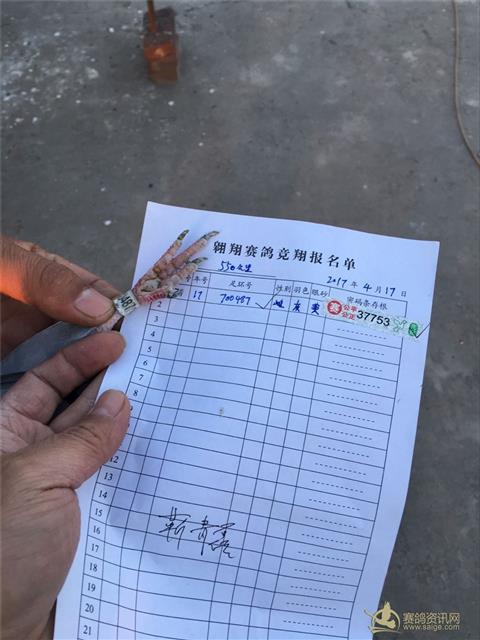 翱翔赛鸽竞翔报名单
550公里
2017年4月17日
年号 足环号 性别 羽色 眼砂 密码条存根
17 700487 雌 灰 黄 赛 公平 公正 37753
3
4
5
6
7
8
9
10
11
12
13
14
15
16
17
18
19
20
21
靳青露
赛鸽资讯网
www.saige.com